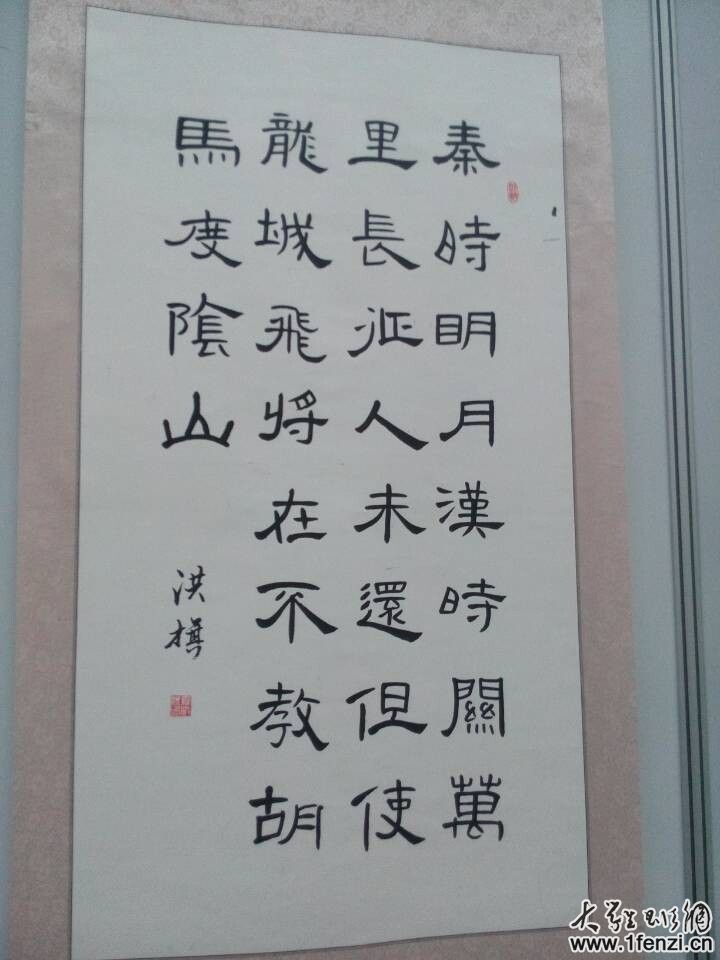 秦時明月漢時關萬
里長征人未還但使
龍城飛將在不教胡
馬度陰山
洪
www.1fenzi.cn